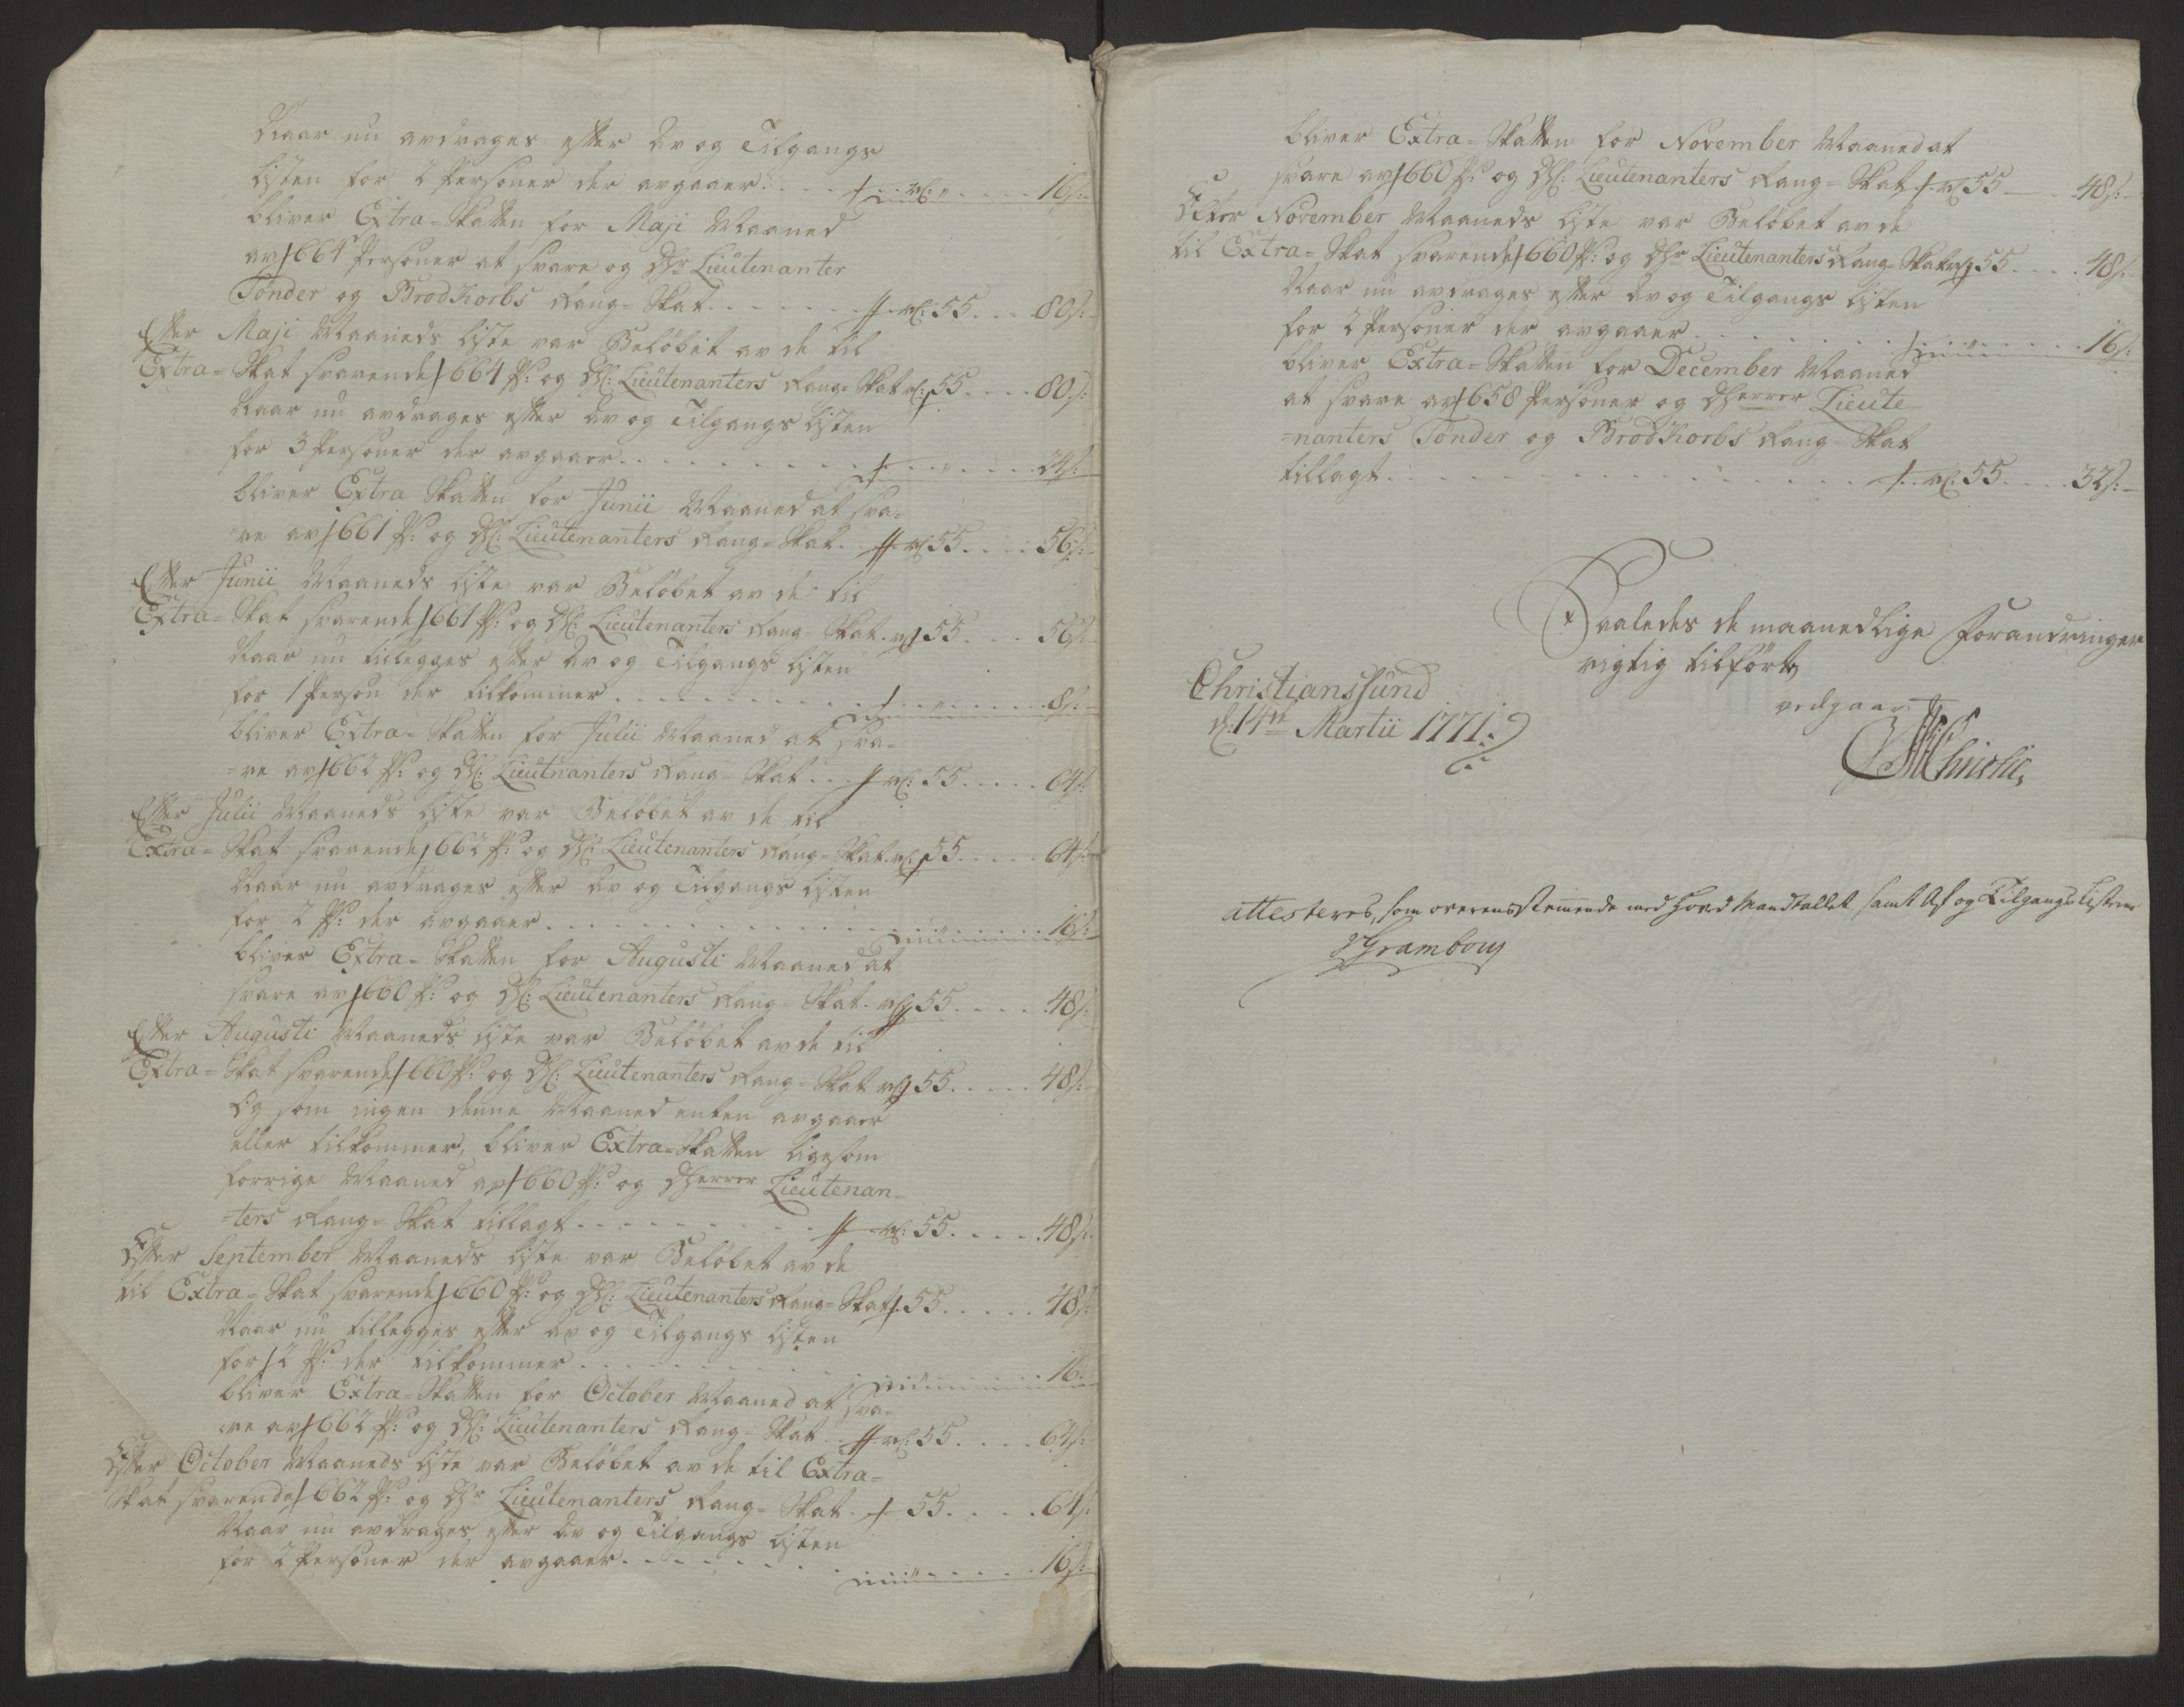 Naar nu avdrages efter Av og Tilgangs
Listen for 2 Personer der avgaaer . . . . 16 s:
bliver Extra-Skatten for Maji Maaned
av 664 Personer at svare og Dhr Lieutenanter
Tönder og BrodKorbs Rang-Skat . . . . rd: 55 . . . 80 s:
Efter Maji Maaneds Liste var Belöbet av de til
Extra-Skat svarende 664 Ps: og DH: Lieutenanters Rang-Skat rd: 55 . . . . 80 s:
Naar nu avdrages efter Av og Tilgangs Listen
for 3 Personer der avgaaer . . . . 24 s:
bliver Extra Skatten for Junii Maaned at sva=
re av 661 Ps: og DH: Lieutenanters Rang-Skat . rd 55 . . . . 56 s:
Efter Junii Maaneds Liste var Belöbet av de til
Extra=Skat svarende 661 Ps: og DH: Lieutenanters Rang-Skat . rd 55 . . . 56 s:
Naar nu tillegges efter Av og Tilgangs Listen
for 1 Person der tilkommer . . . . 8 s:
bliver Extra-Skatten for Julii Maaned at sva=
=re av 662 Ps: og DH: Lieutnanters Rang-Skat . . rd: 55 . . . . 64 s:
Efter Julii Maaneds Liste var Belöbet av de til
Extra=Skat svarende 662 Ps: og DH: Lieutenanters Rang-Skat . rd: 55 . . . . 64 s:
Naar nu avdrages efter Av og Tilgangs Listen
for 2 Ps: der avgaaer . . . . 16 s:
bliver Extra-Skatten for Augusti Maaned at
svare av 660 Ps: og DH: Lieutenanters Rang-Skat . rd 55 . . . . 48 s:
Efter Augusti Maaneds Liste var Belöbet av de til
Extra=Skat svarende 660 Ps: og DH: Lieutenanters Rang-Skat rd 55 . . . . 48 s:
Og som ingen denne Maaned enten avgaaer
eller tilkommer, bliver Extra=Skatten ligesom
forrige Maaned av 660 Ps: og DHerrer Lieutenan=
=ters Rang-Skat tillagt . . . . rd: 55 . . . . 48 s:
Efter September Maaneds Liste var Belöbet av de
til Extra=Skat svarende 660 Ps: og DH: Lieutenanters Rang-Skat . 55 . . . . 48 s:
Naar nu tillegges efter Av og Tilgangs Listen
for 2 Ps: der tilkommer . . . . 16.
bliver Extra-Skatten for October Maaned at sva=
re av 662 Ps: og DH: Lieutenanters Rang-Skat . . rd: 55 . . . . 64 s:
Efter October Maaneds Liste var Belöbet av de til Extra=
Skat svarende 662 Ps: og DHr Lieutenanters Rang-Skat . 55 . . . . 64 s:
Naar nu avdrages efter Av og Tilgangs Listen
for 2 Personer der avgaaer . . . . 16 s:
bliver Extra-Skatten for November Maaned at
svare av 660 Ps: og DH: Lieutenanters Rang-Skat rd 55 — 48 s:
Efter November Maaneds Liste var Belöbet av de
til Extra-Skat svarende 660 Ps: og DHr Lieutenanters Rang-Skat rd 55 . . . . 48 s:
Naar nu avdrages efter Av og Tilgangs Listen
for 2 Personer der avgaaer . . . . 16 s:
bliver Extra-Skatten for December Maaned
at svare av 658 Personer og DHerrer Lieute
=nanters Tönder og BrodKorbs Rang Skat
tillagt . . . . rd: 55 . . . . 32 s:
Saaledes de maanedlige Forandringer
rigtig tilfört
vedgaar
Christianssund
d: 14de Martii 1771.
Christie,
attesteres, som overensstemende med Hoved Mandtallet samt Af og Tilgangs Listerne